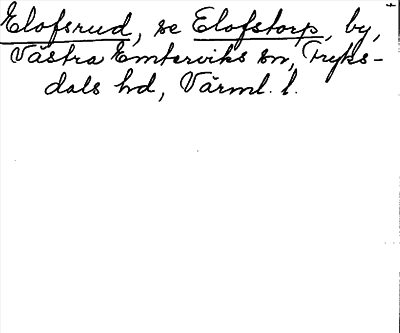 Elofsrud, se Elofstorp, by,
Västra Emterviks sn, Fryks-
dals hd, Värml. l.